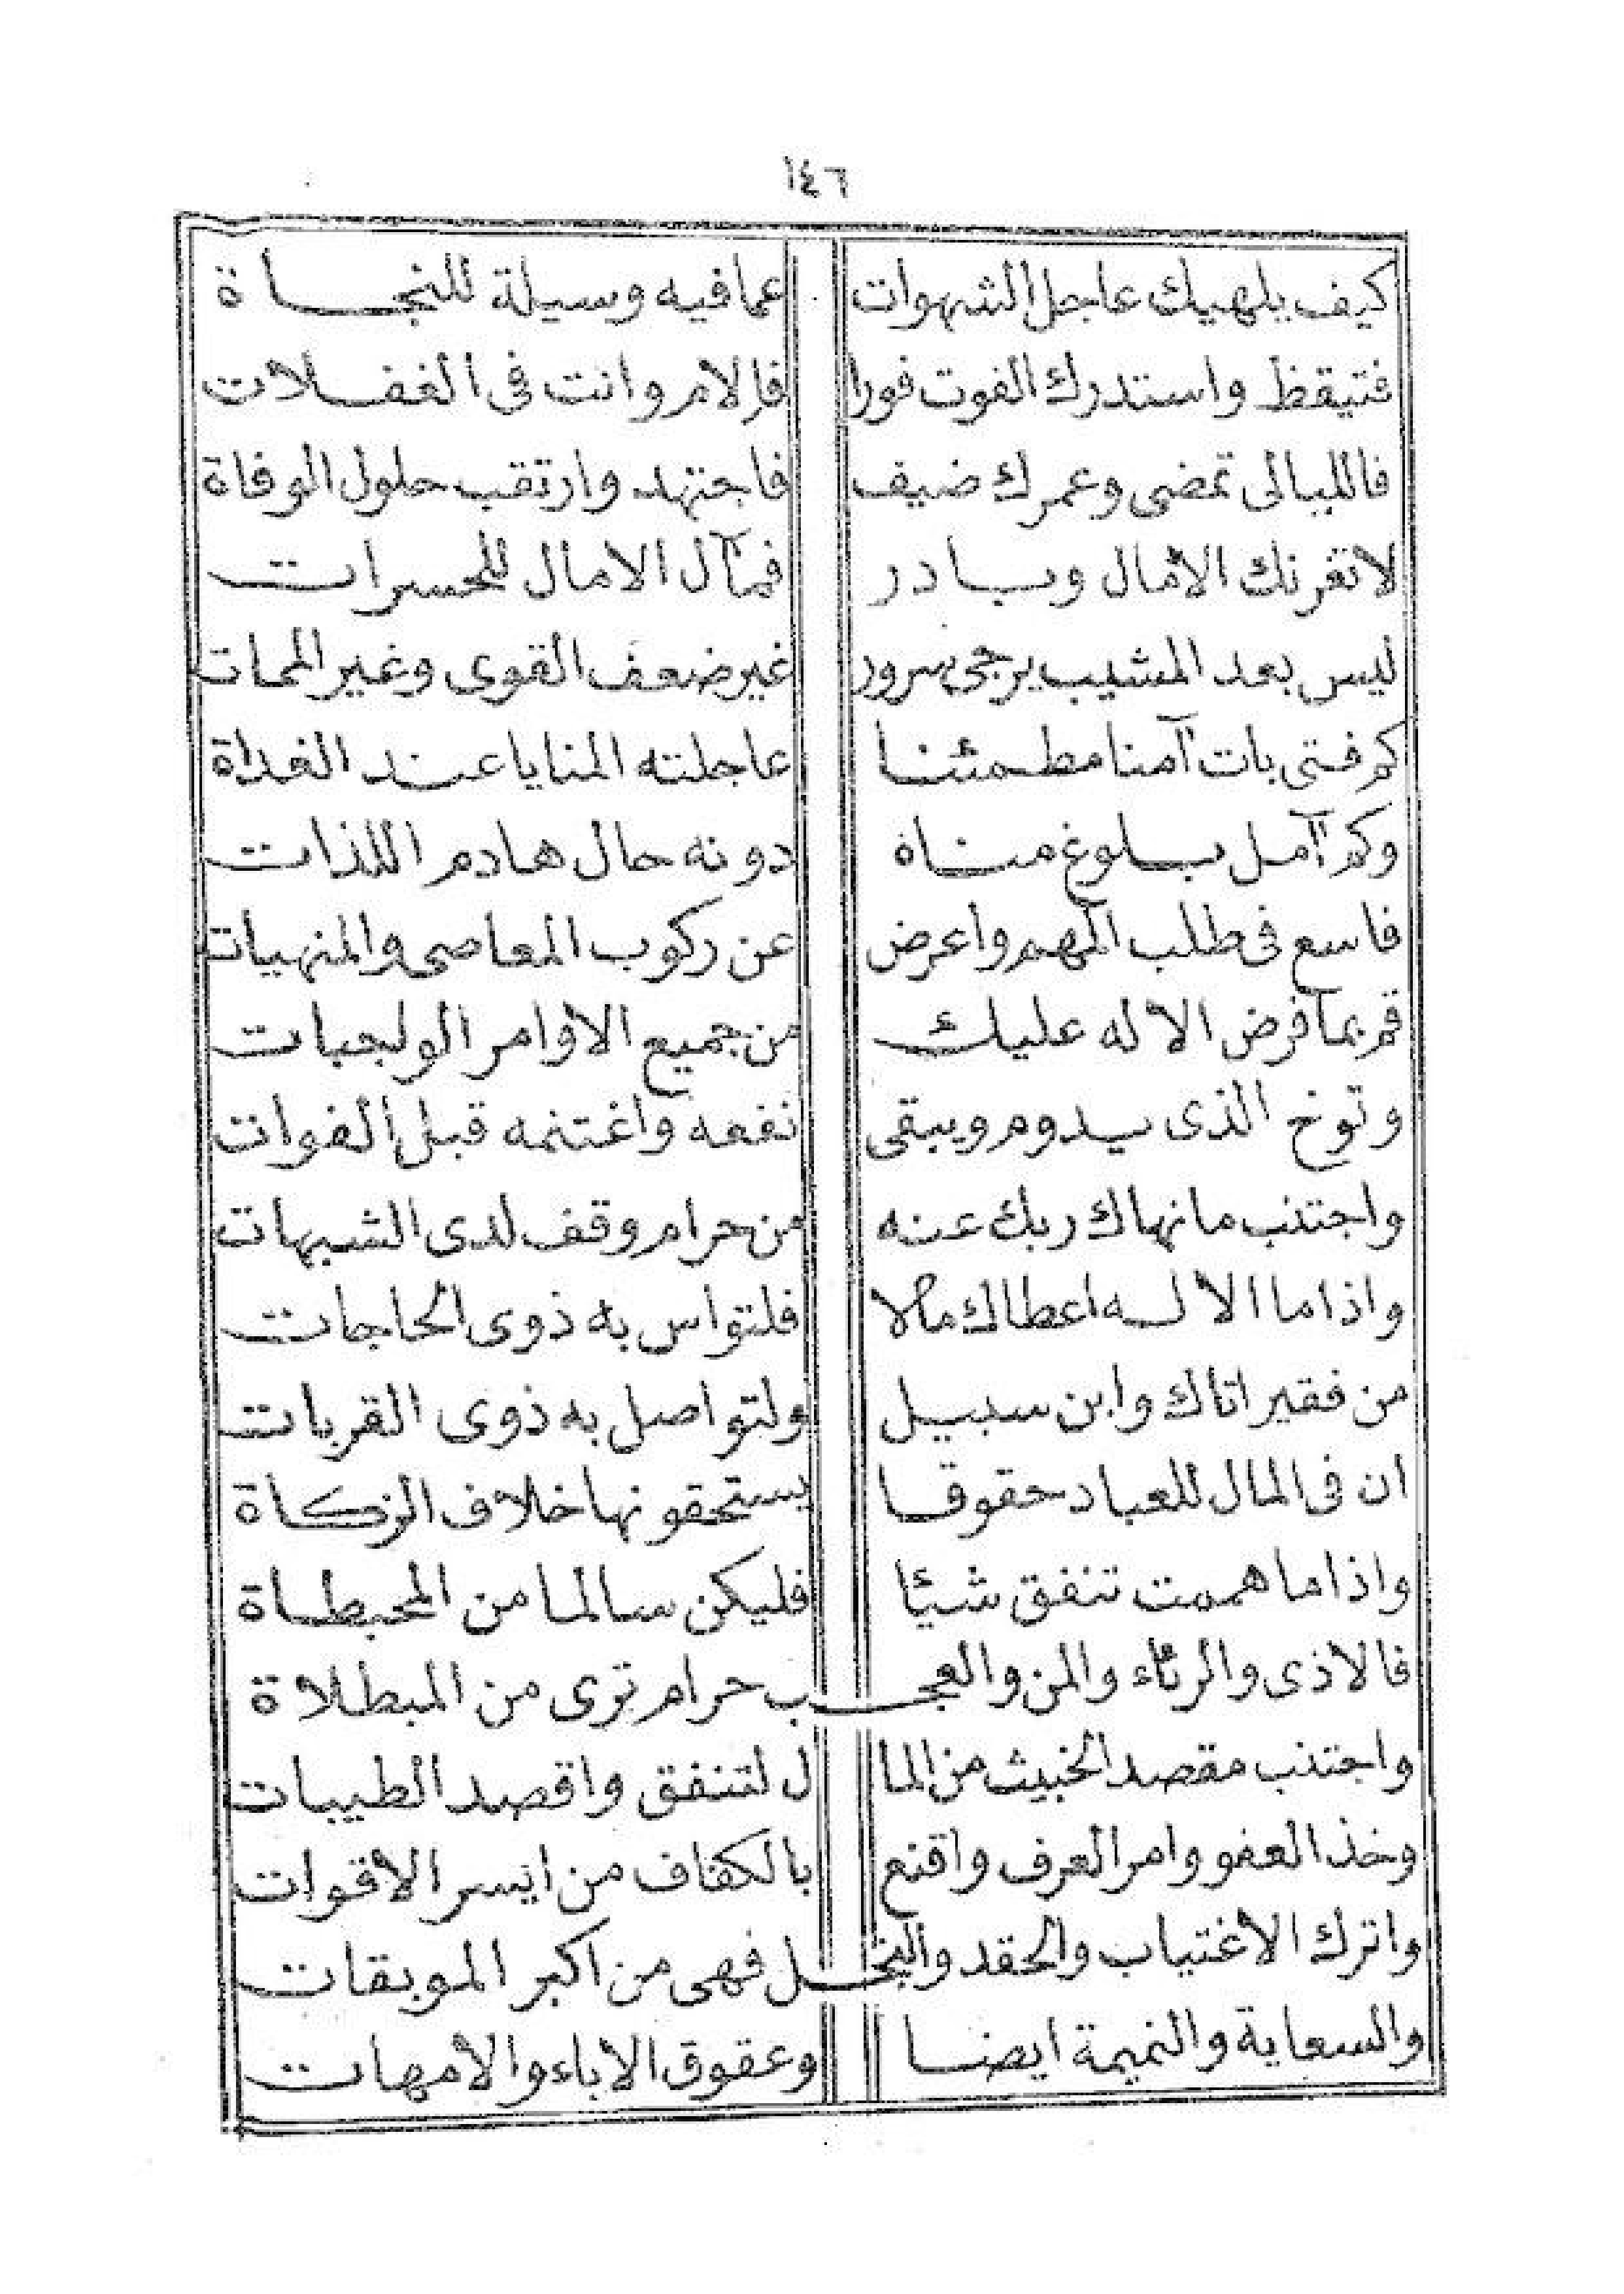 ١٤٦
كيف يلهيك عاجل الشهوات عما فيه وسيلة للنجاة
فتيقظ واستدرك الفوت فورا فإلام وانت فى الغفلات
فالليالى تمضى وعمرك ضيف فاجتهد وارتقب حلول الوفاة
لاتغرنك الأمال وبادر فمآل الامال للحسرات
ليس بعد المشيب يرجى سرور غير ضعف القوى وغير الممات
كم فتى بات آمنا مطمئنا عاجلته المنايا عند الغداة
وكم آمل بلوغ مناه دونه حال هادم اللذات
فاسع فى طلب المهم واعرض عن ركوب المعاصى والمنهيات
قم بما فرض الاله عليك من جميع الاوامر الواجبات
وتوخ الذى يدوم ويبقى نفعه واغتنمه قبل الفوات
واجتنب ما نهاك ربك عنه من حرام وقف لدى الشبهات
واذا ما الاله اعطاك مالا فلتواس به ذوى الحاجات
من فقير اتاك وابن سبيل ولتواصل به ذوى القربات
ان فى المال للعباد حقوقا يستحقونها خلاف الزكاة
واذا ما هممت تنفق شيئا فليكن سالما من المحبطاة
فالاذى والرئاء والمن والعجب حرام ترى من المبطلاة
واجتنب مقصد الخبيث من الما ل لتنفق واقصد الطيبات
وخذ العفو وامر العرف واقنع بالكفاف من ايسر الاقوات
واترك الاغتياب والحقد والبخل فهى من اكبر الموبقات
والسعاية والنميمة ايضا وعقوق الاباء والأمهات